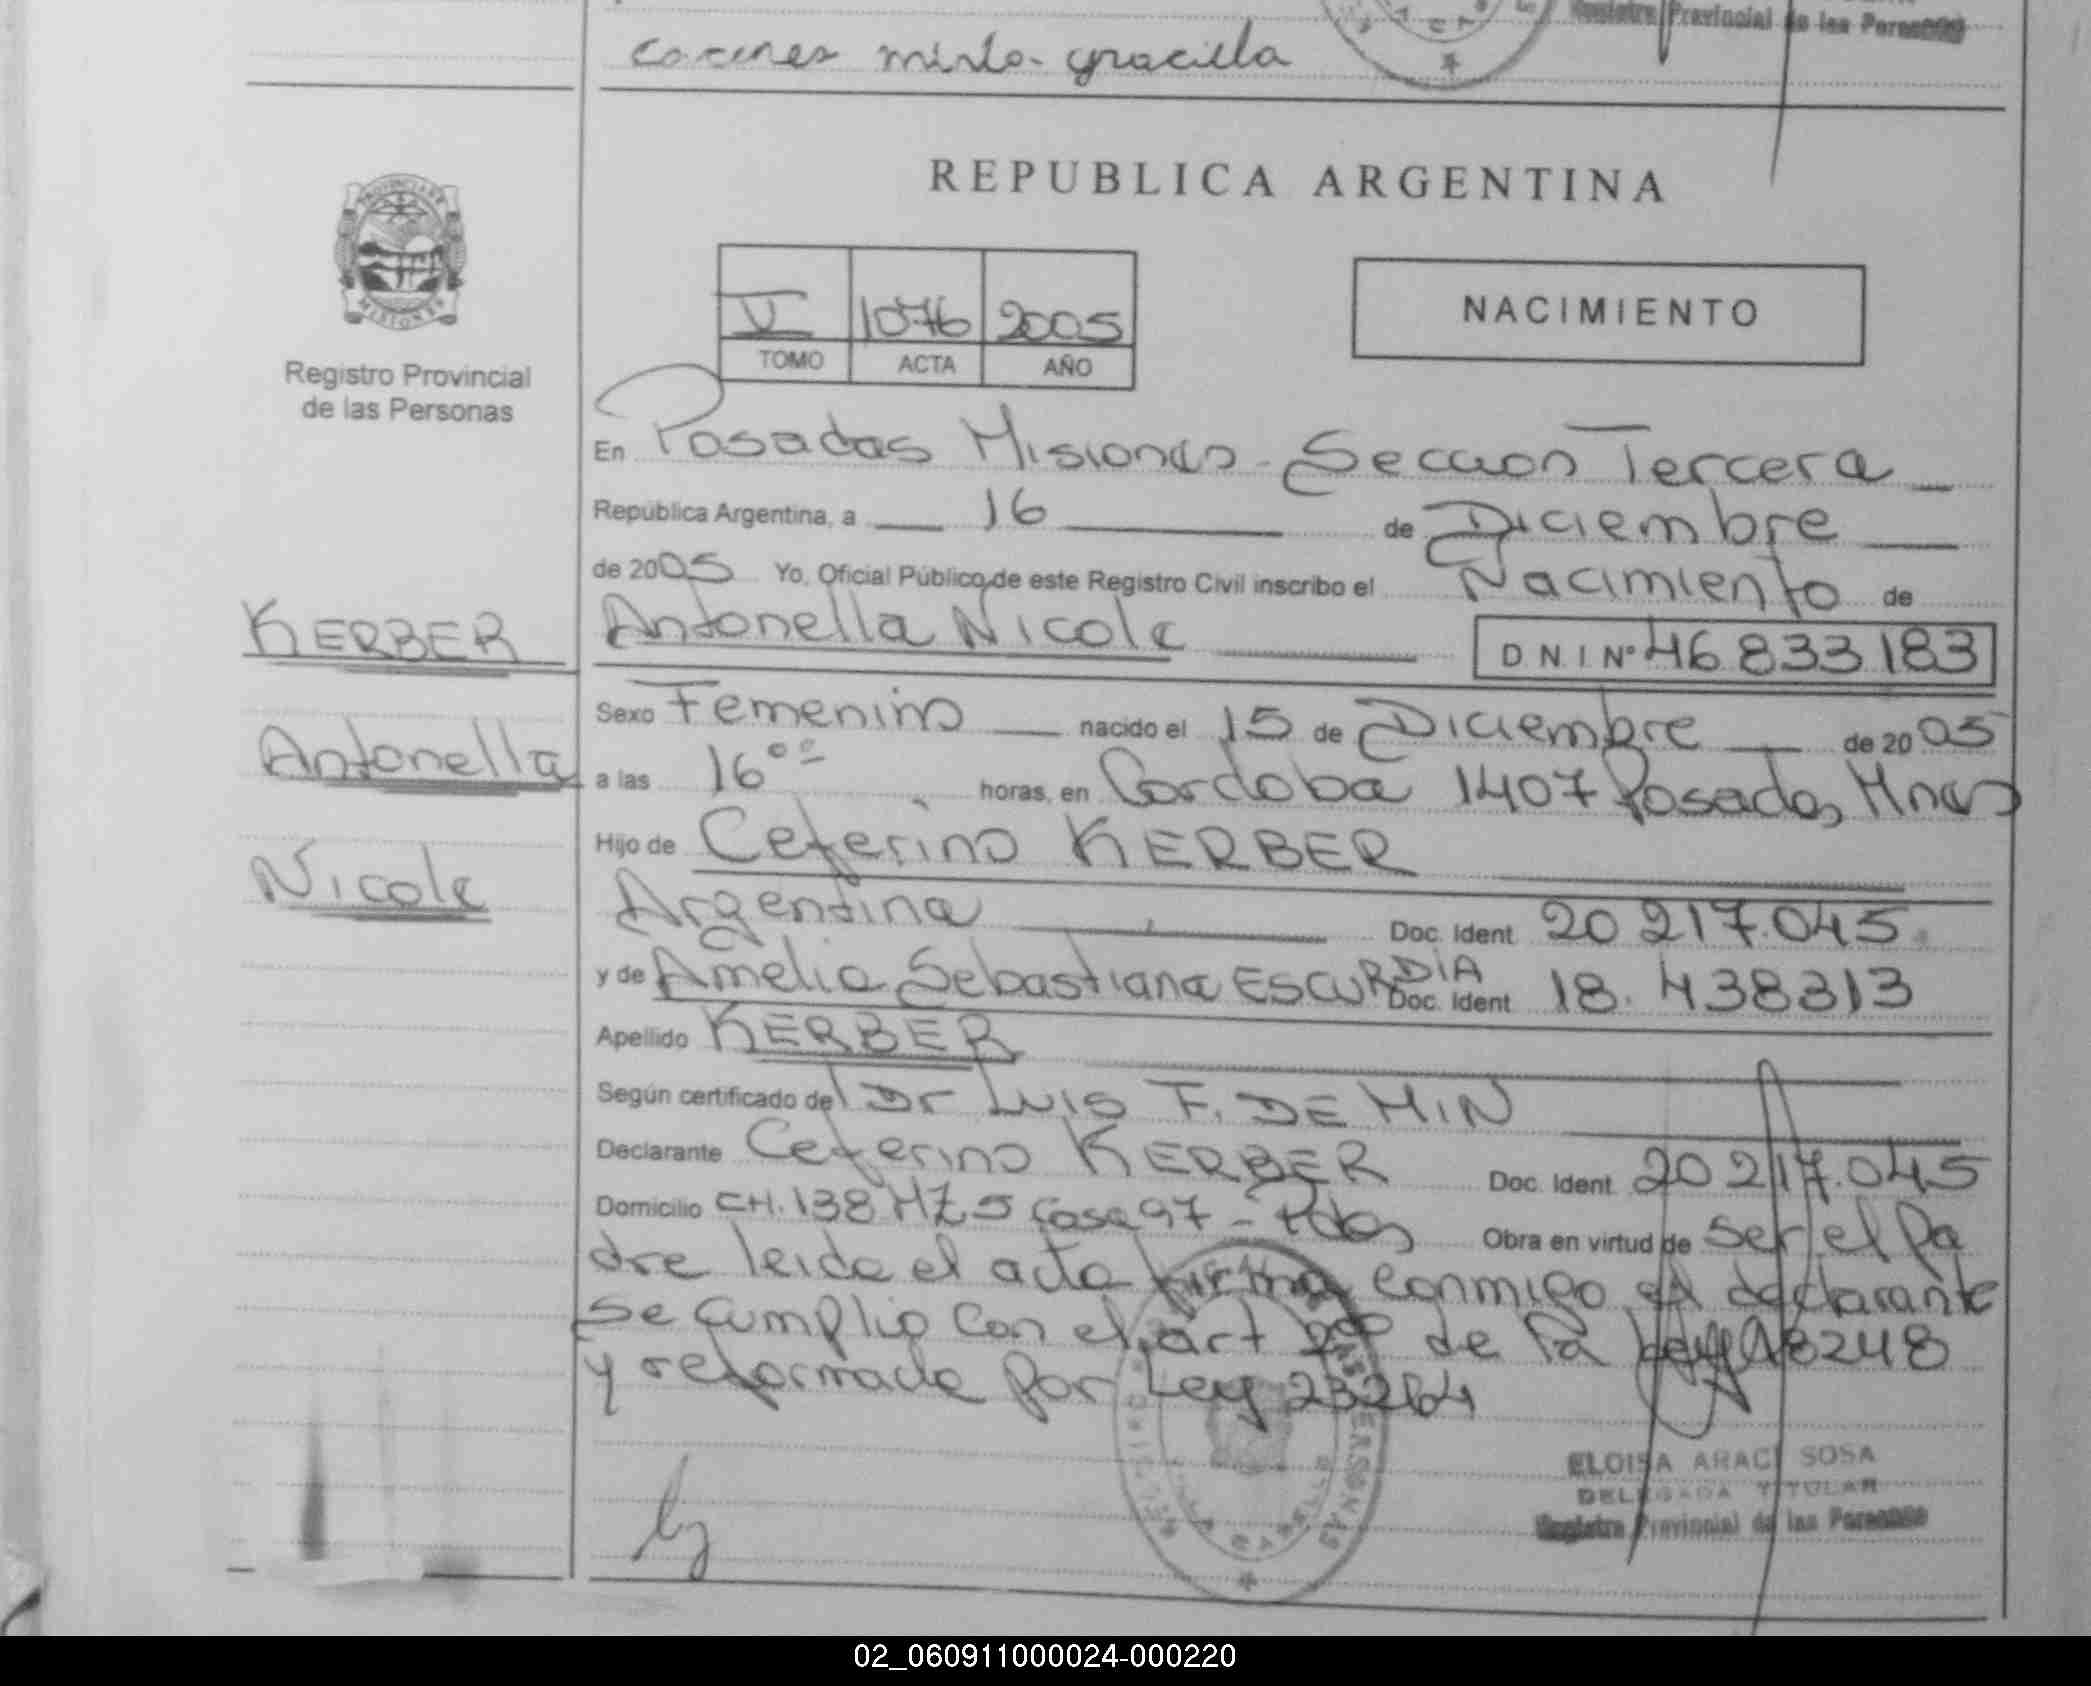 Registro Provincial de las Personas
cocines mirlo- gracilla
REPUBLICA ARGENTINA
PROVINCIA DE
MISIONES
Registro Provincial
de las Personas
V 1076 2005
TOMO ACTA AÑO
NACIMIENTO
En Posadas Misiones - Seccion Tercera
República Argentina, a 16 de Diciembre
de 2005 Yo, Oficial Público de este Registro Civil inscribo el Nacimiento de
KERBER
Antonella Nicole D N. I Nº 46 833 183
Sexo Femenino nacido el 15 de Diciembre de 20 05
Antonella
a las 16 00 horas, en Cordoba 1407 Posadas, Mnes
Hijo de Ceferino KERBER
Nicole
Argentina Doc. Ident 20 217.045.
y de Amelia Sebastiana ESCURDIA Doc. Ident 18. 438313
Apellido KERBER
Según certificado del Dr LUIS F. DE MIN
Declarante Ceferino KERBER Doc. Ident. 20 217.045
Domicilio CH. 138 MZ 5 Casa 97 - Pdas Obra en virtud de ser el Pa
dre leida el acta firma conmigo el declarante
se cumplio con el art 2do de la Ley 18248
y reformada por Ley 23264
ELOISA ARACI SOSA
DELEGADA TITULAR
Registro Provincial de las Personas
02_060911000024-000220